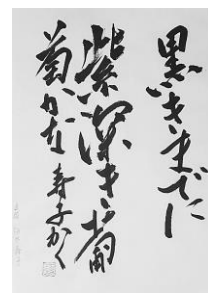 黒きまでに
紫深き葡
萄かな 寿子かく